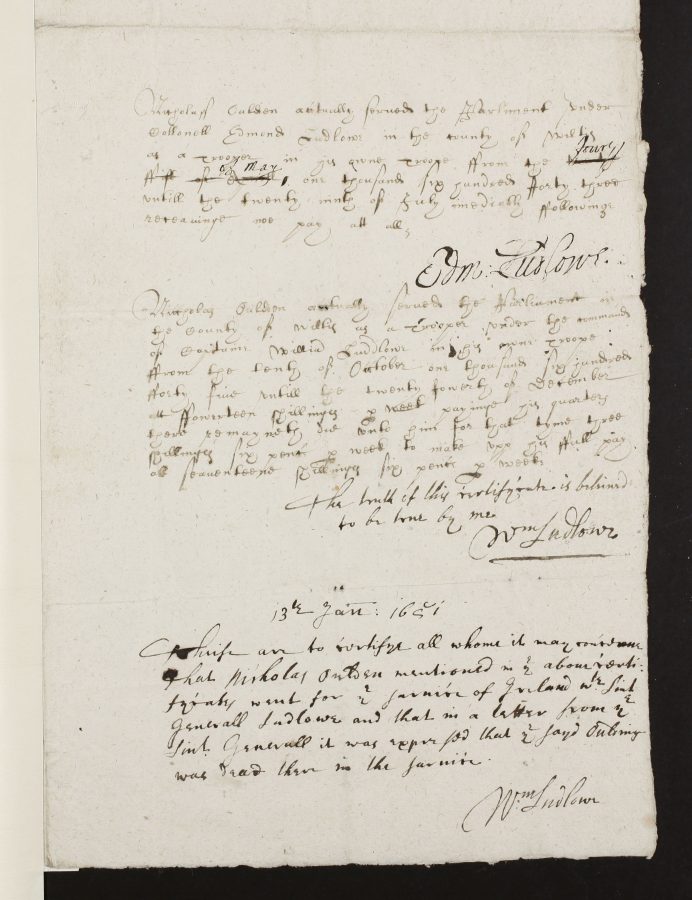 Nicholass Oulden actually served the Parliment under
Collonell Edmond Ludlowe in the county of Willts
as a trooper in his owne troope ffrom the
ffift of May, one thousand six hundred fforty three
untill the twenty ninth of July imediatly ffollowinge
receavinge noe pay att all
Edm: Ludlowe.
Nicholas Oulden actually served the Parliament in
the County of Willts as a trooper under the commande
of Captaine William Ludlowe in his owne troope
ffrom the tenth of October one thousand six hundred
fforty five untill the twenty fowerth of December
att ffowerteen shillinges p week payinge his quarters
there remayneth due unto him for that tyme three
shillinges six pence p week to make upp his ffull pay
att seaventeene shillinges six pence p weeke
The truth of this certifycate is beleived
to be true by me
Wm Ludlowe
13th Jan: 1651
Theise are to certifye all whome it may concerne
that Nicholas Oulden mentioned in ye above certi:
fycates went for ye service of Ireland wth Lint
Generall Ludlowe and that in a letter from ye
Lint. Generall it was expressed that ye sayd Oulding
was dead there in the service.
Wm Ludlowe